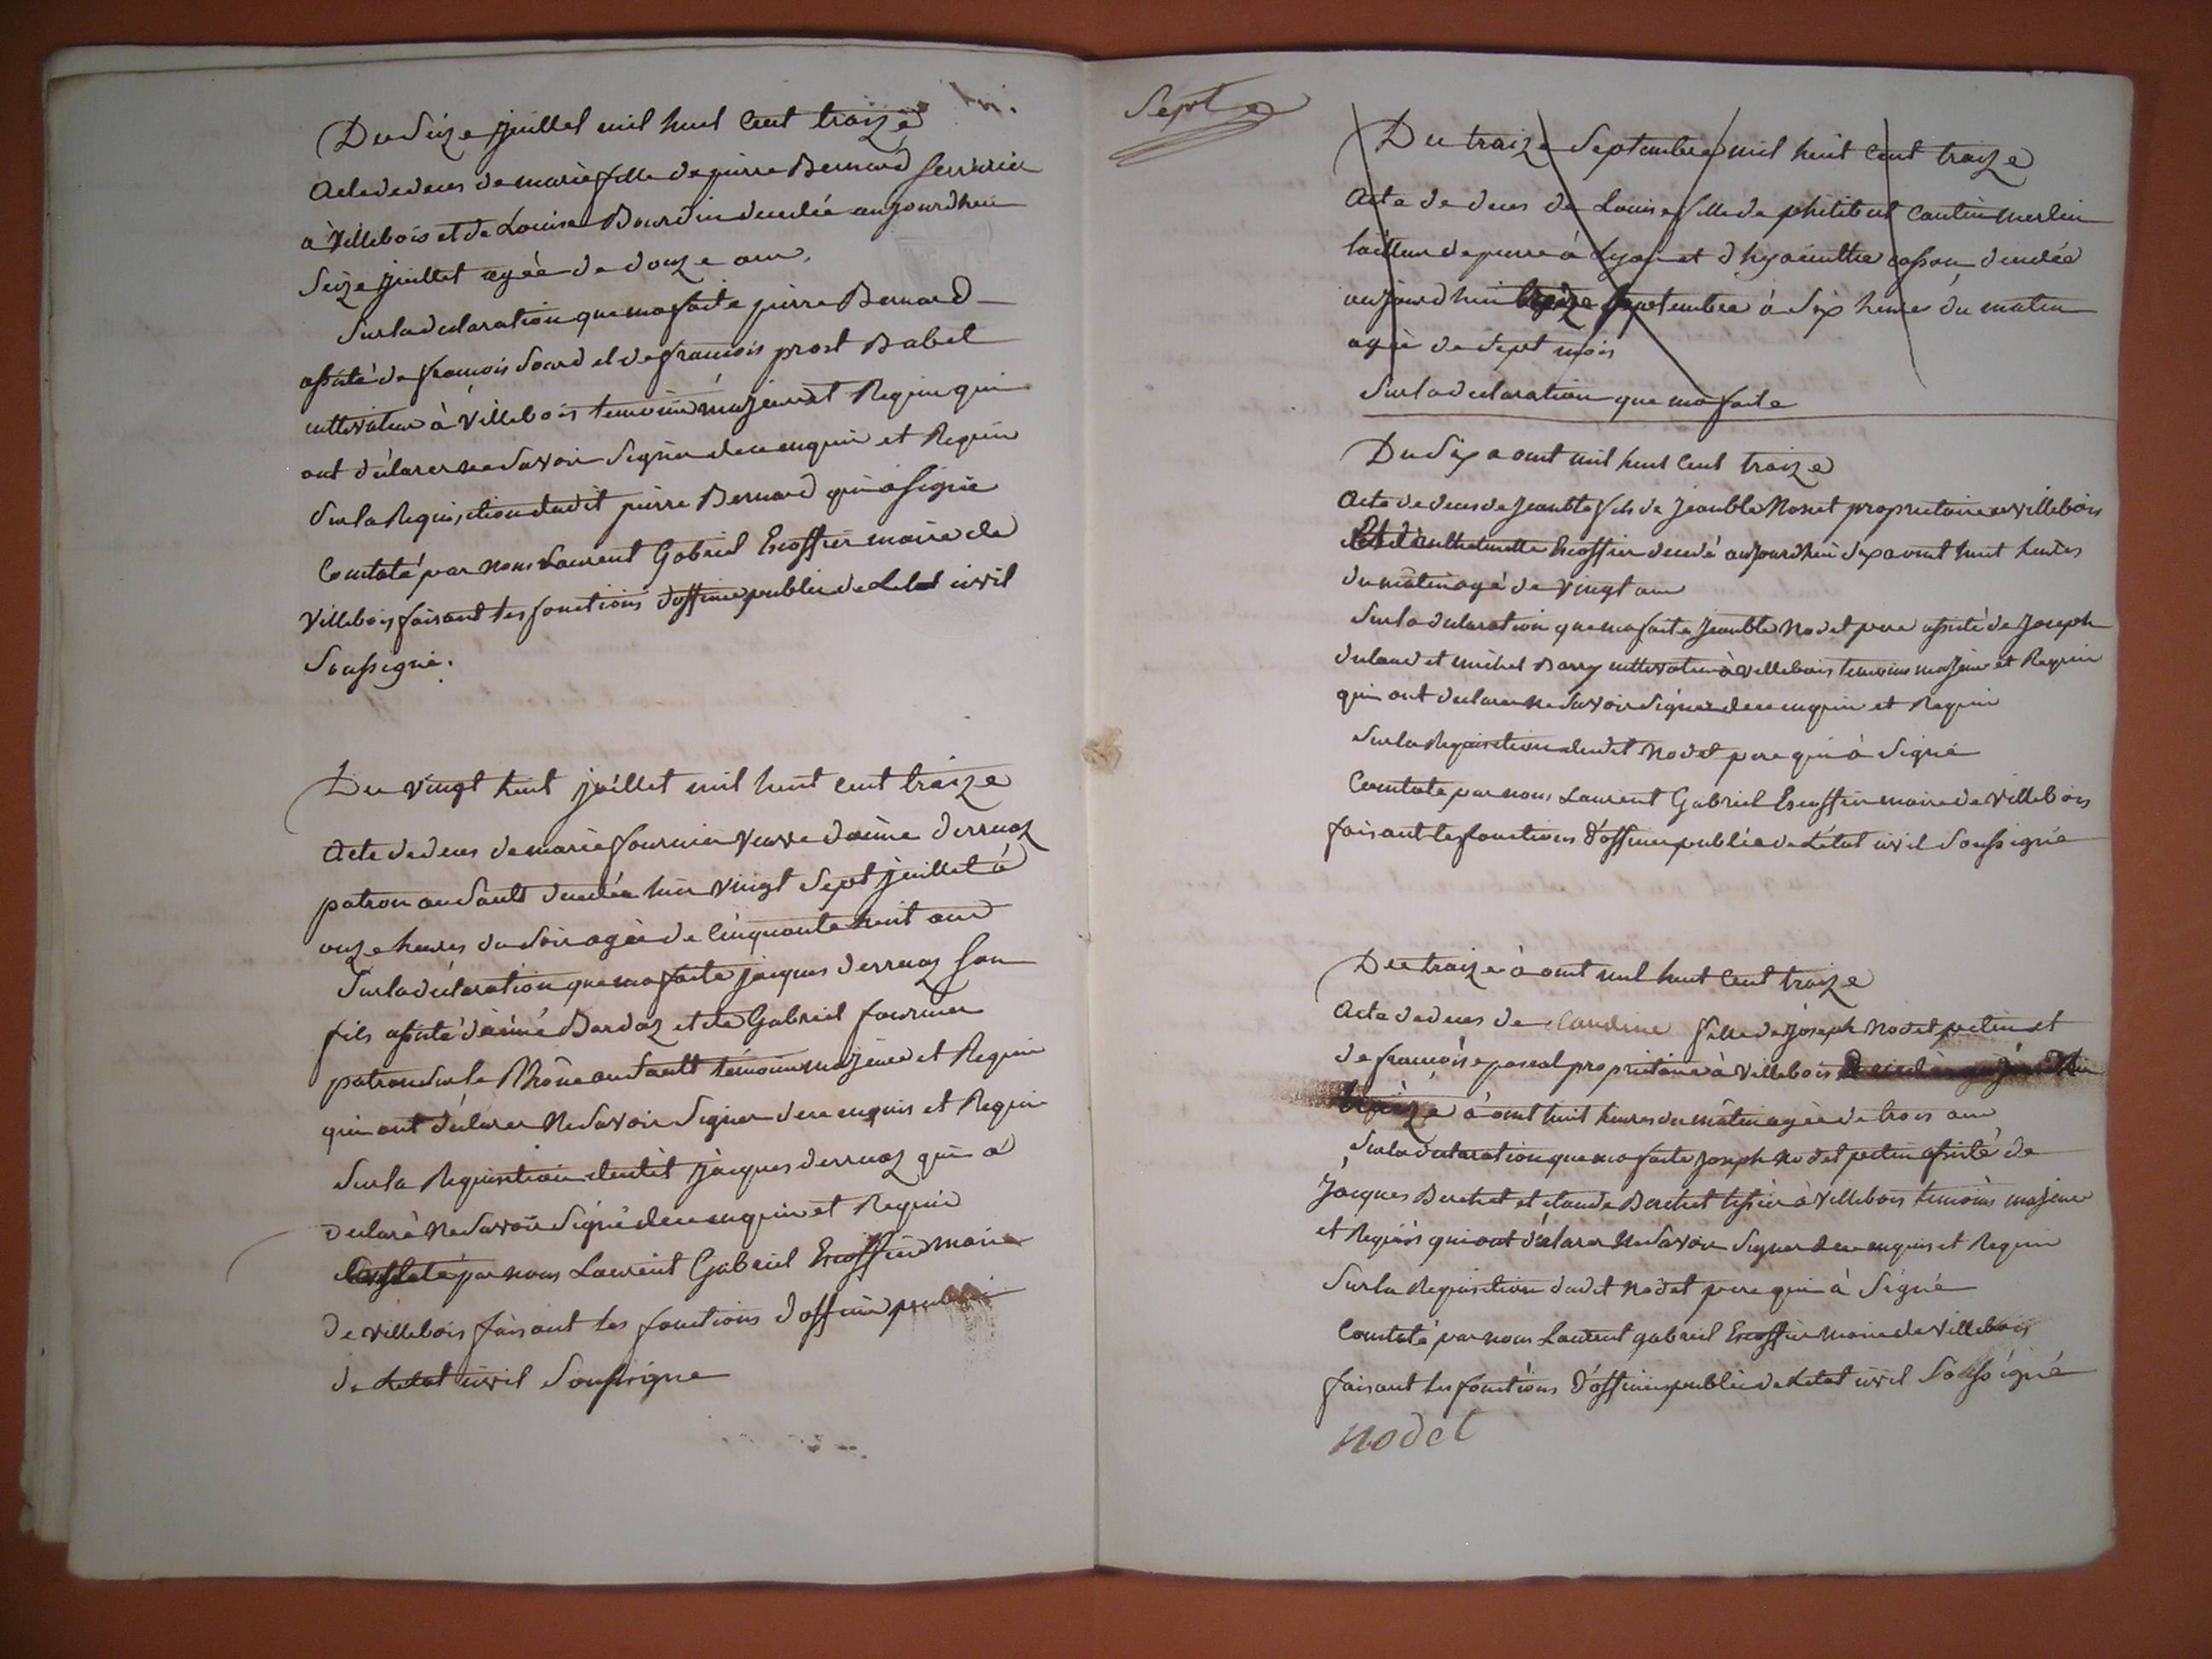 Du Seize juillet mil huit Cent traize
Acte de deces de marie fille de pierre Bernard serrurier
a Villebois et de Louise Bourdin decedée aujourdhui
Seize juillet agée de douze ans.
Sur la declaration que ma faite pierre Bernard
assisté de françois Sourd et de françois prost Babel
cultivateur à Villebois temoins majeurs et Requis qui
ont déclarer ne Savoir Signer de ce enquis et Requis
Sur la Requisition dudit pierre Bernard qui a signé
Constaté par nous Laurent Gabriel Escoffier maire de
Villebois faisant les fonctions dofficier public de Letat civil
Soussigné.
Du vingt huit juillet mil huit cent traize
Acte de deces de marie fournier veuve daimé derruaz
patron au Sault decedée hier vingt Sept juillet à
onze heures du Soir agée de Cinquante huit ans
Sur la déclaration que ma faite jacques derruaz son
fils assisté daimé Bardoz et de Gabriel fournier
patron Sur le Rhône au Sault témoins majeurs et Requis
qui ont déclarer Ne Savoir Signer de ce enquis et Requis
Sur la Requisition dudit jacques derruaz qui a
declaré Ne Savoir Signé de ce enquis et Requis
Constaté par nous Laurent Gabriel Escoffier maire
de villebois faisant les fonctions dofficier public
de Letat civil Soussigné
Septe
Du traize Septembre mil huit Cent traize
Acte de deces de Louise fille de philibert Cantin Merlin
tailleur de pierre à Lyon et d hyacinthe casson decedée
aujourdhui traize Septembre à Six heures du matin
agée de Sept mois
Sur la declaration que ma faite
Du Six aout mil huit Cent traize
Acte de deces de Jean Bte fils de Jean Bte Nodet proprietaire a villebois
Et d'anthelmette Escoffier decedé aujourdhui Six aout huit heures
du mâtin agé de vingt ans
Sur la declaration que ma faite Jean Bte Nodet pere assisté de Joseph
duland et michel Barry cultivateur à villebois temoins majeurs et Requis
qui ont declarer ne Savoir Signer de ce enquis et Requis
Sur la Requisition dudit Nodet pere qui à Signé
Constaté par nous Laurent Gabriel Escoffier maire de Villebois
faisant les fonctions d'officier public de Létat civil Soussigné
Du traize à out mil huit Cent traize
Acte de deces de Claudine fille de Joseph Nodet pectin et
de françoise pascal proprietaire à Villebois Decedée aujourdhui
traize à out huit heures du mâtin agée de trois ans
Sur la declaration que ma faite Joseph Nodet pectin assisté de
Jacques Berchet et claude Berchet tissier à Villebois temoins majeurs
et Requis qui ont déclarer Ne Savoir Signer de ce enquis et Requis
Sur la Requisition dudit Nodet pere qui à Signé
Constaté par nous Laurent gabriel Escoffier Maire de Villebois
faisant les fonctions d'officier public de Letat civil Soussigné
nodet